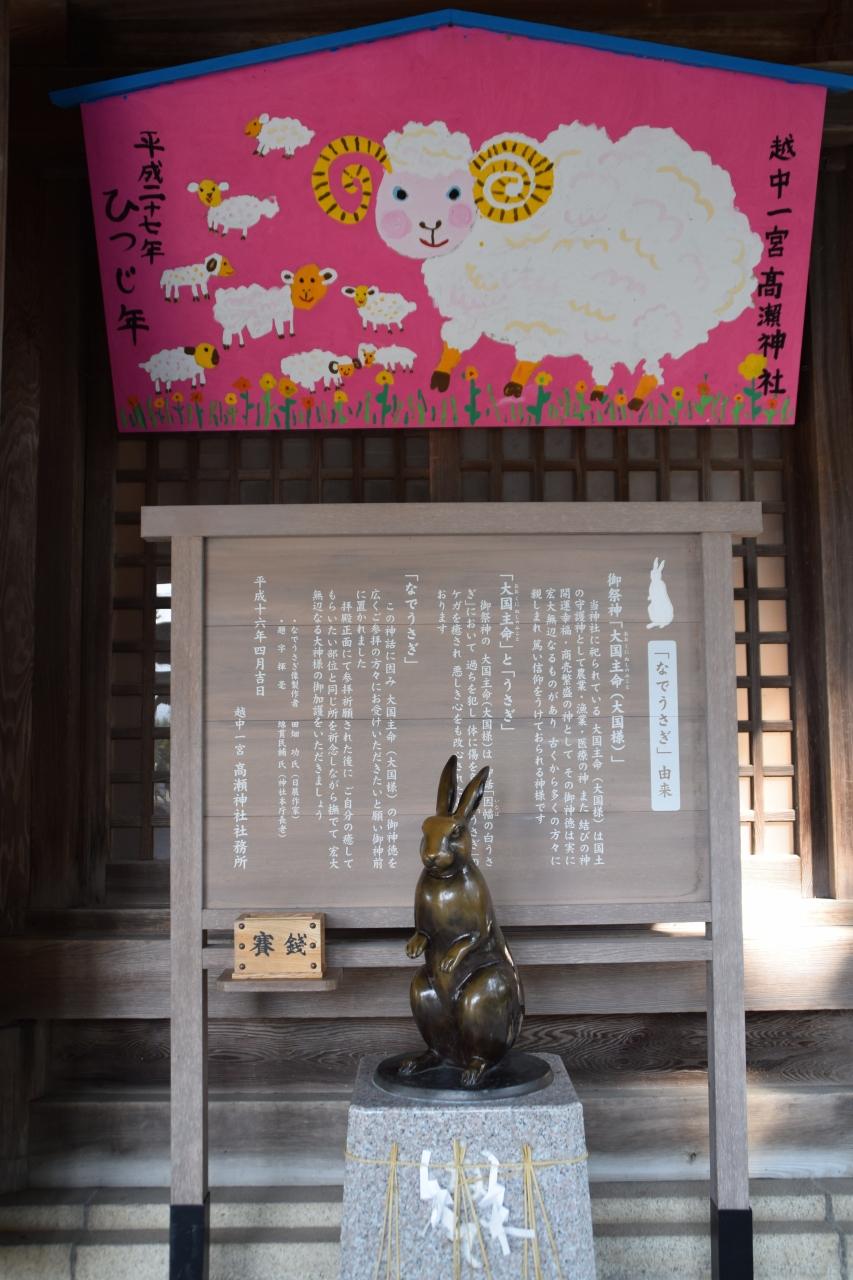 越中一宮 高瀬神社
平成二十七年
ひつじ年
「なでうさぎ」由来
御祭神「大国主命(大国様)」
当神社に祀られている 大国主命(大国様)は国土
の守護神として農業・漁業・医療の神 また 結びの神
開運幸福・商売繁盛の神として その御神徳は実に
宏大無辺なるものがあり 古くから多くの方々に
親しまれ 篤い信仰をうけておられる神様です
「大国主命」と「うさぎ」
御祭神の 大国主命(大国様)は 神話 因幡の白うさ
ぎ」において 過ちを犯し 体に傷を
ケガを癒され 悪しき心をも改心
おります
「なでうさぎ」
この神話に因み 大国主命(大国様)の御神徳を
広くご参拝の方々にお受けいただきたいと願い御神前
に置かれました
拝殿正面にて参拝祈願された後に ご自分の癒して
もらいたい部位と同じ所を祈念しながら撫でて 宏大
無辺なる大神様の御加護をいただきましょう
・なでうさぎ像製作者 田畑 功 氏(日展作家)
・題字揮毫 綿貫民輔 氏(神社本庁長老)
平成十六年四月吉日
越中一宮 高瀬神社社務所
賽銭